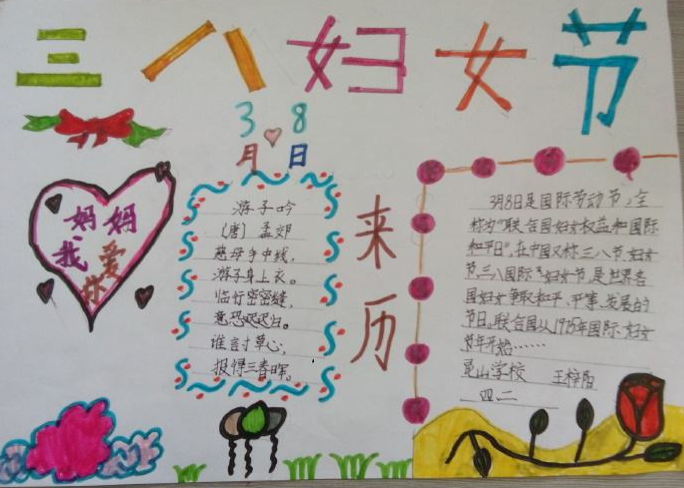 三八妇女节
3月8日
妈妈
我爱你
游子吟
(唐)孟郊
慈母手中线,
游子身上衣。
临行密密缝,
意恐迟迟归。
谁言寸草心,
报得三春晖。
来历
3月8日是国际劳动节,全
称为“联合国妇女权益和国际
和平日”,在中国又称三八节、妇女
节、三八国际妇女节,是世界各
国妇女争取和平、平等、发展的
节日。联合国从1975年国际妇女
节年开始……
昆山学校 王梓
四二